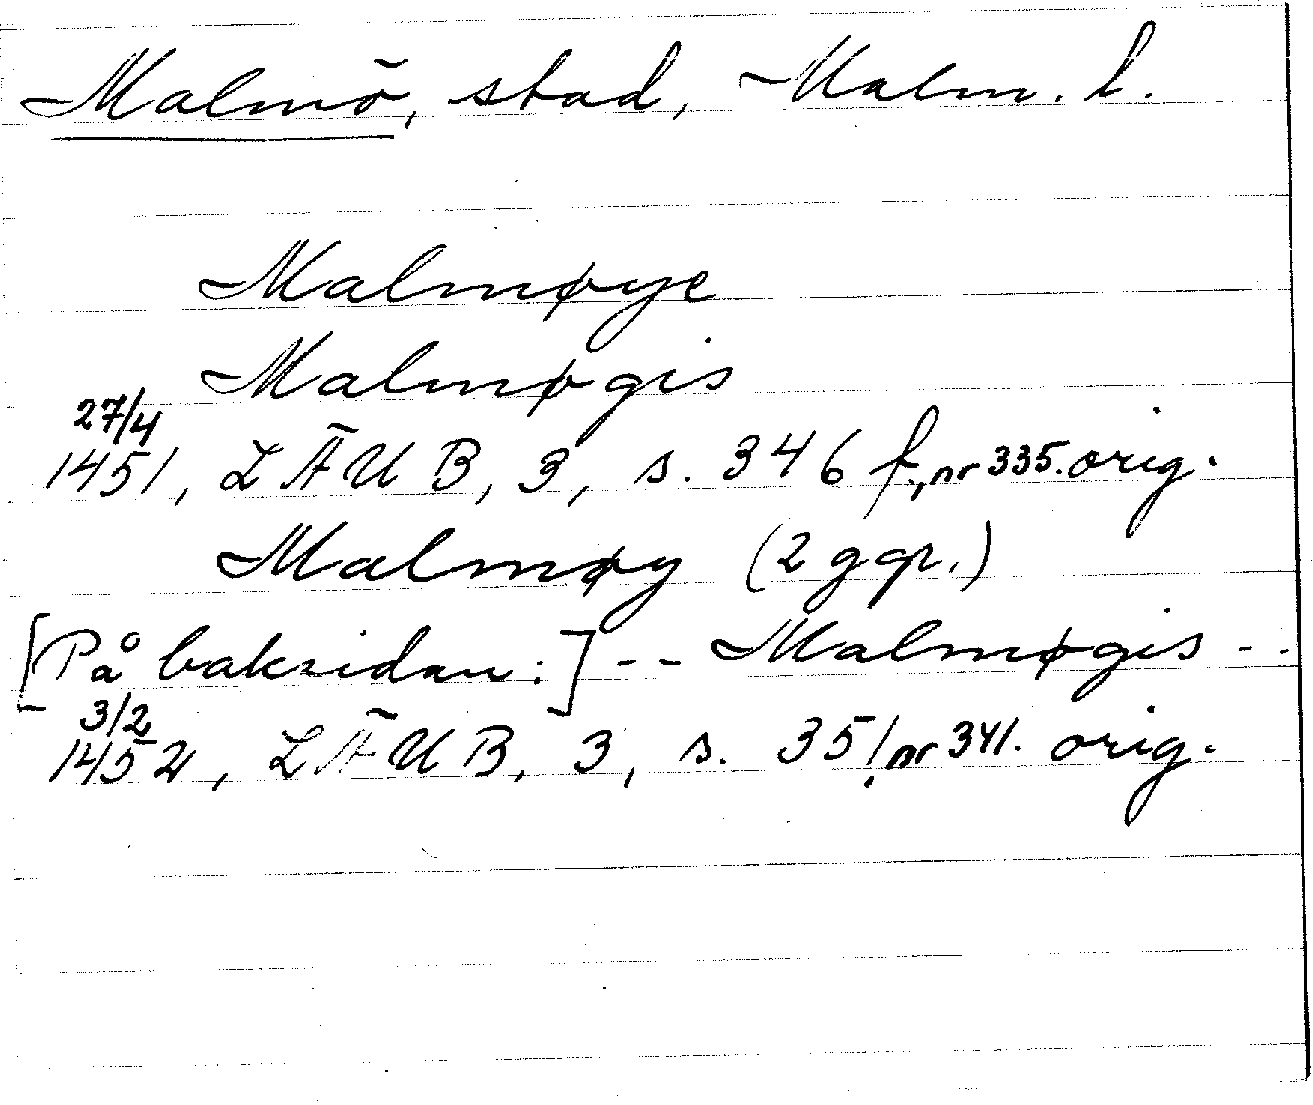 Malmö, stad, Malm. l.
Malmøye
Malmøgis
27/4
1451, LÄUB, 3, s. 346 f., nr 335. orig.
Malmøy (2 ggr.)
[På baksidan:] -- Malmøgis --
3/2
1452, LÄUB, 3, s. 351, nr 341. orig.